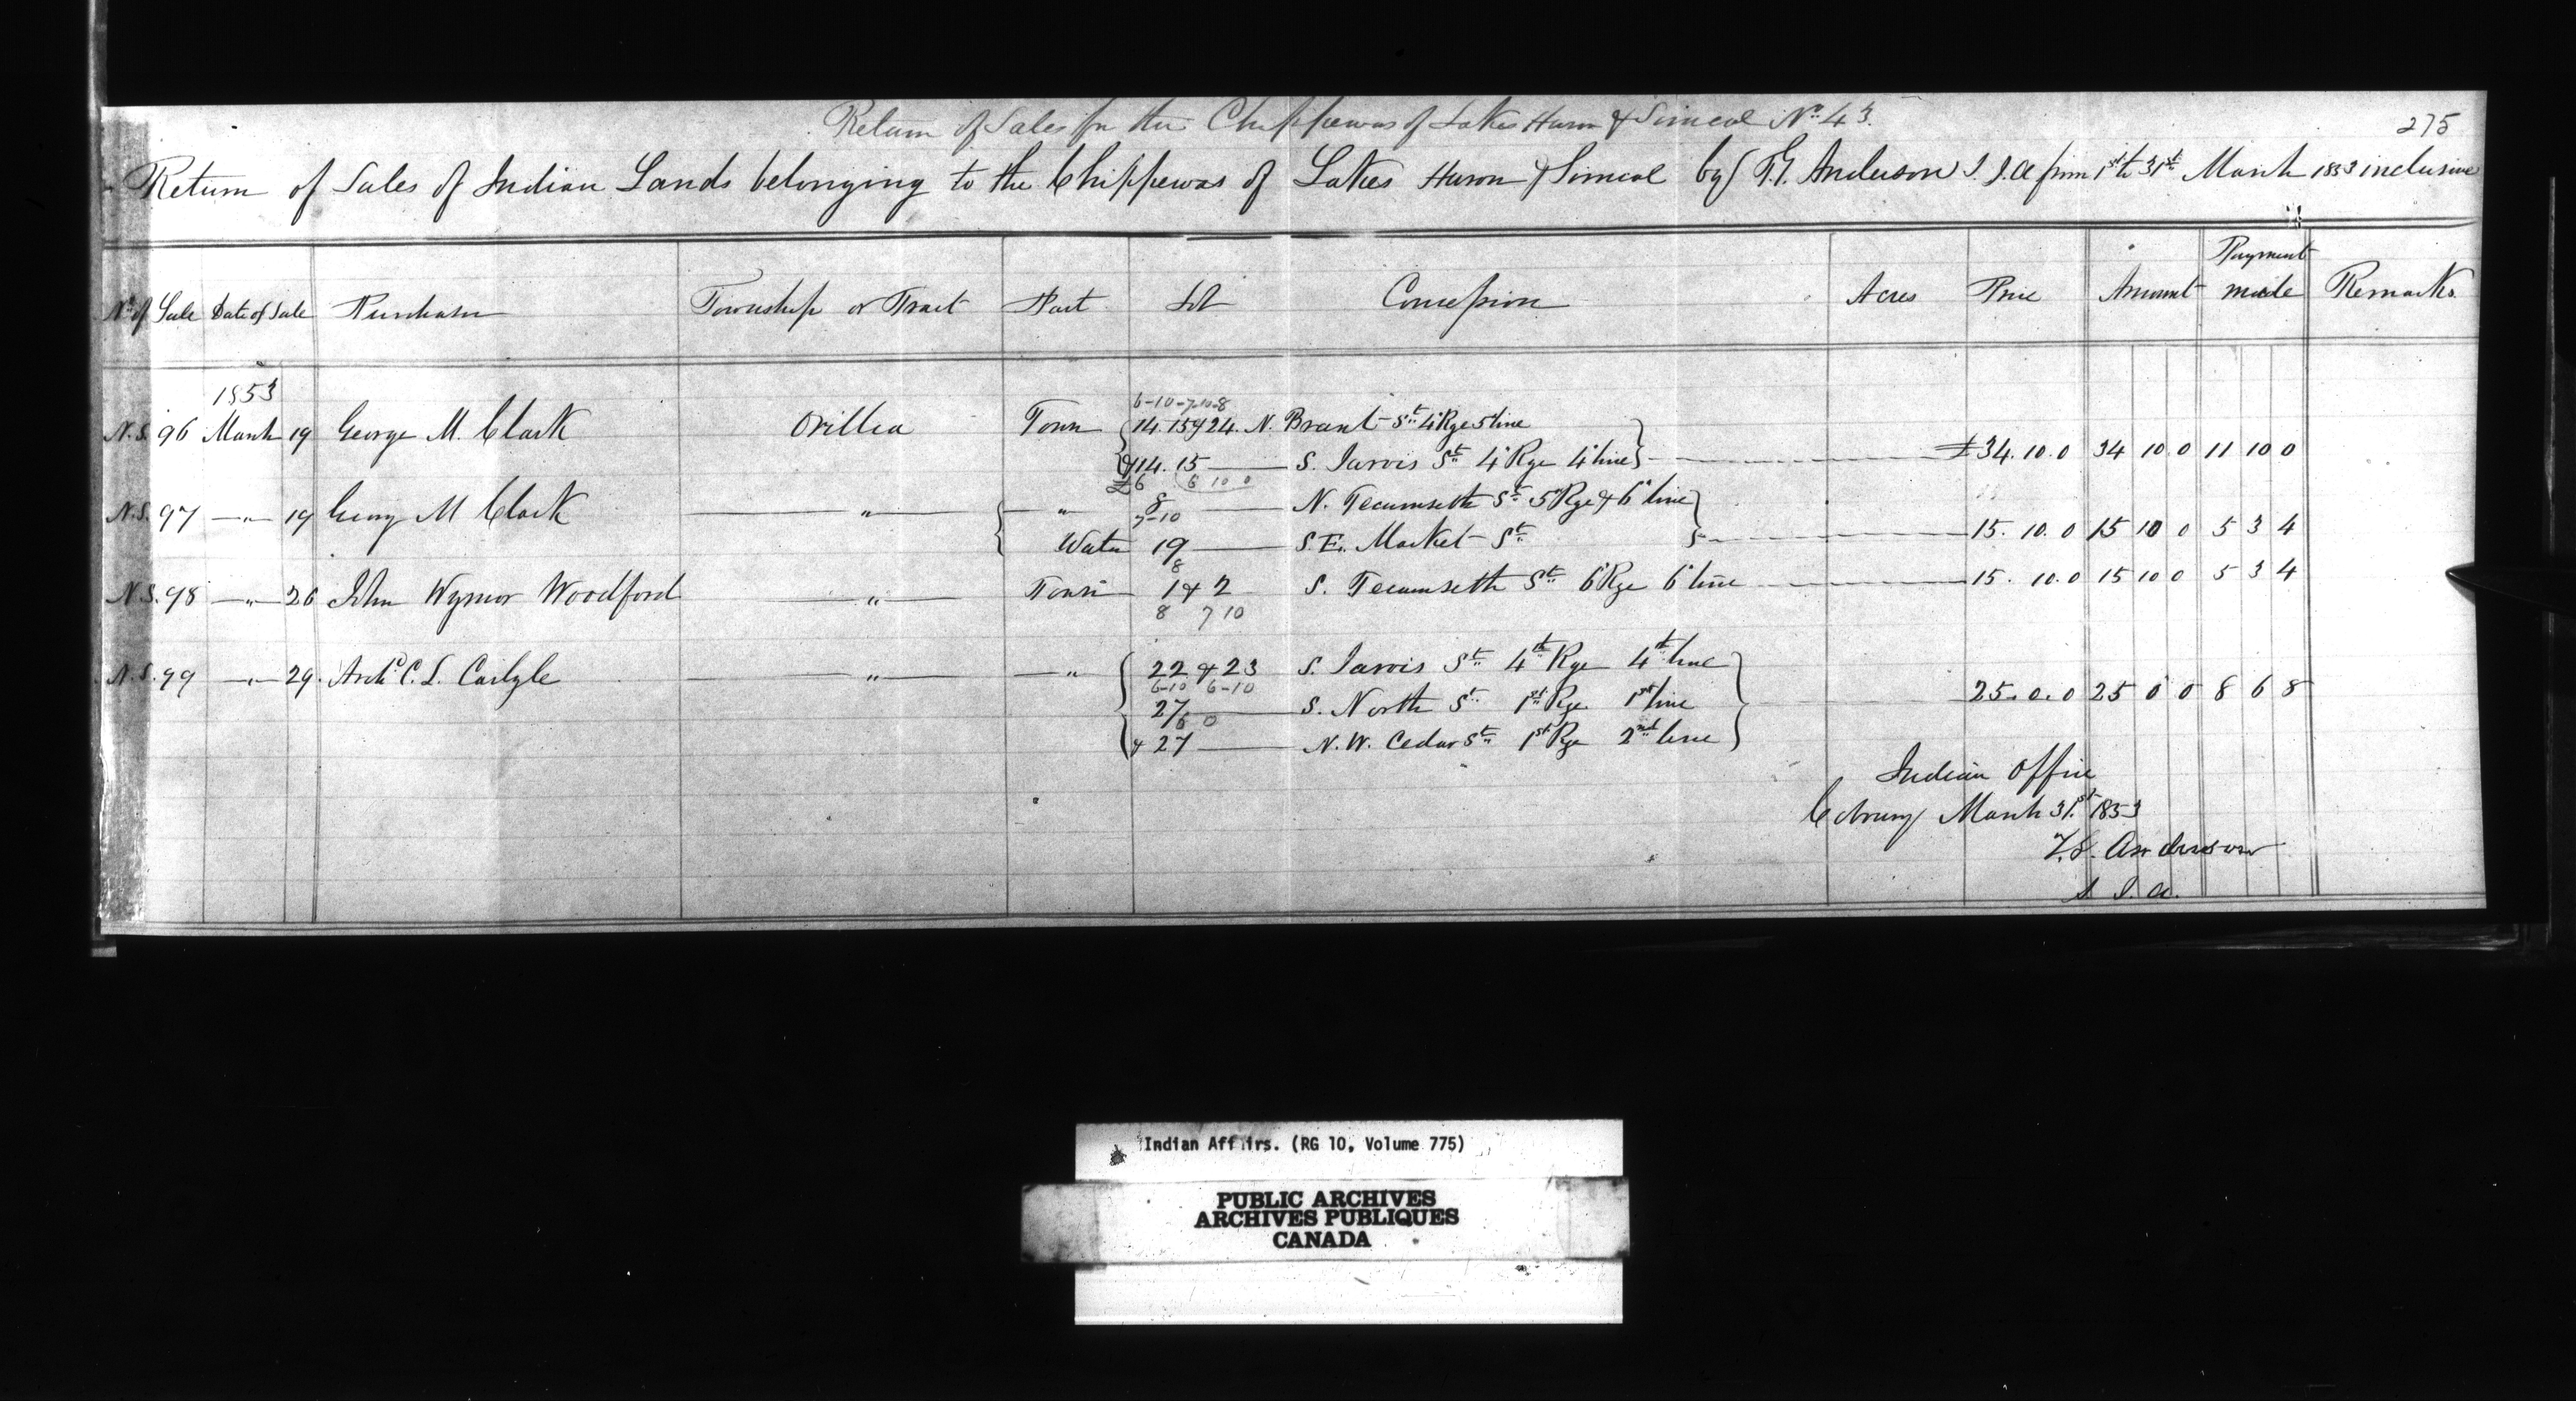 Return of Sales for the Chippewas of Lakes Huron & Simcoe No. 43.
275
Return of Sales of Indian Lands belonging to the Chippewas of Lakes Huron & Simcoe by T.G. Anderson S.I.A from 1st to 31st March 1853 inclusive
No. of Sale Date of Sale Purchaser Township or Tract Part Lot Concession Acres Price Amount Payment made Remarks
1853
6-10-7-10-8
N.S. 96 March 19 George M. Clark Orillia Town 14.15 & 24. N. Brant St. 4 Rge 5 line
& 14. 15 S. Jarvis St. 4 Rge 4 line £34.10.0 34 10 0 11 10 0
£6 6 10 0
N.S. 97 " 19 George M Clark " " 8 N. Tecumseth St. 5 Rge & 6 line
7-10
Water 19 S.E. Market St. 15.10.0 15 10 0 5 3 4
8
N.S. 98 " 26 John Wymor Woodford " Town 1 & 2 S. Tecumseth St. 6 Rge 6 line 15.10.0 15 10 0 5 3 4
8 7 10
N.S. 99 " 29. Archd. C. L. Carlyle " " 22 & 23 S. Jarvis St. 4th Rge 4th line
6-10 6-10
27 S. North St. 1st Rge 1st line 25.0.0 25 0 0 8 6 8
6 0
& 27 N.W. Cedar St. 1st Rge 2nd line
Indian Office
Cobourg March 31st 1853
T.G. Anderson
S.I.A.
Indian Affairs. (RG 10, Volume 775)
PUBLIC ARCHIVES
ARCHIVES PUBLIQUES
CANADA